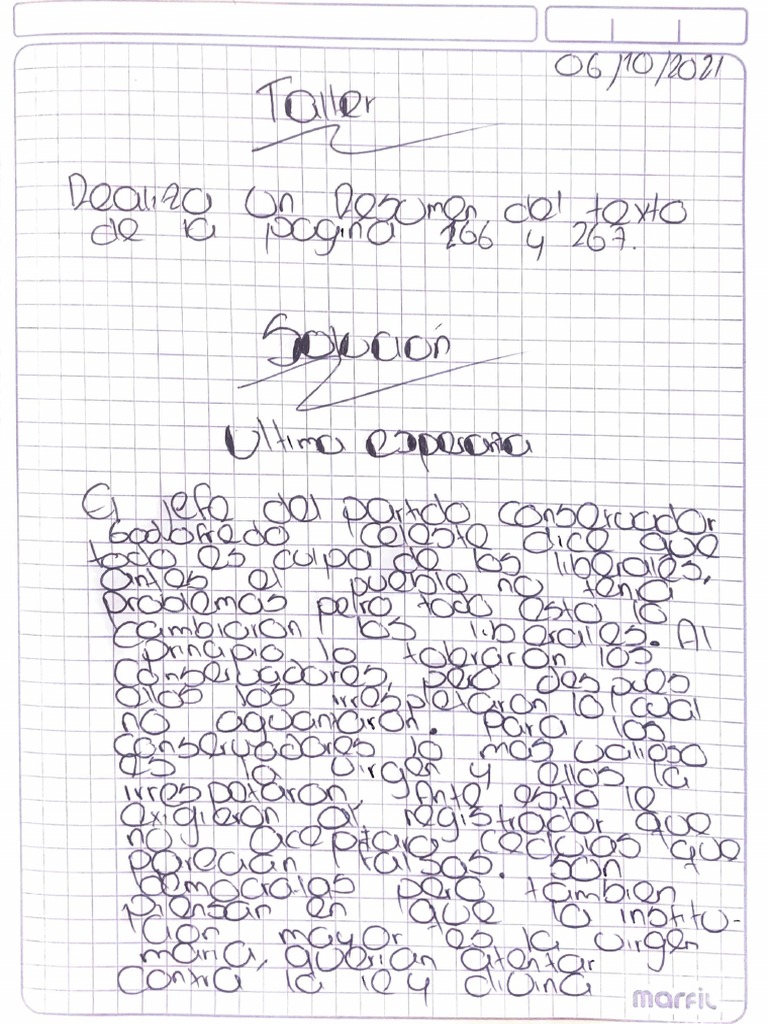 06/10/2021
Taller
Realiza un Resumen del texto
de la pagina 266 y 267.
Solución
Ultima esperanza
El jefe del partido conservador
Godofredo celeste dice que
todo es culpa de los liberales,
antes el pueblo no tenia
problemas pero todo esto lo
cambiaron los liberales. Al
principio lo toleraron los
conservadores, pero despues
ellos los irrespetaron lo cual
no aguantaron. para los
conservadores lo mas valioso
es la virgen y ellos la
irrespetaron, Ante esto le
exigieron al registrador que
no aceptara cedulas que
parecian falsas. Son
democratas pero tambien
piensan en que la institu-
cion mayor es la virgen
maria, querian atentar
contra la ley divina
marfil